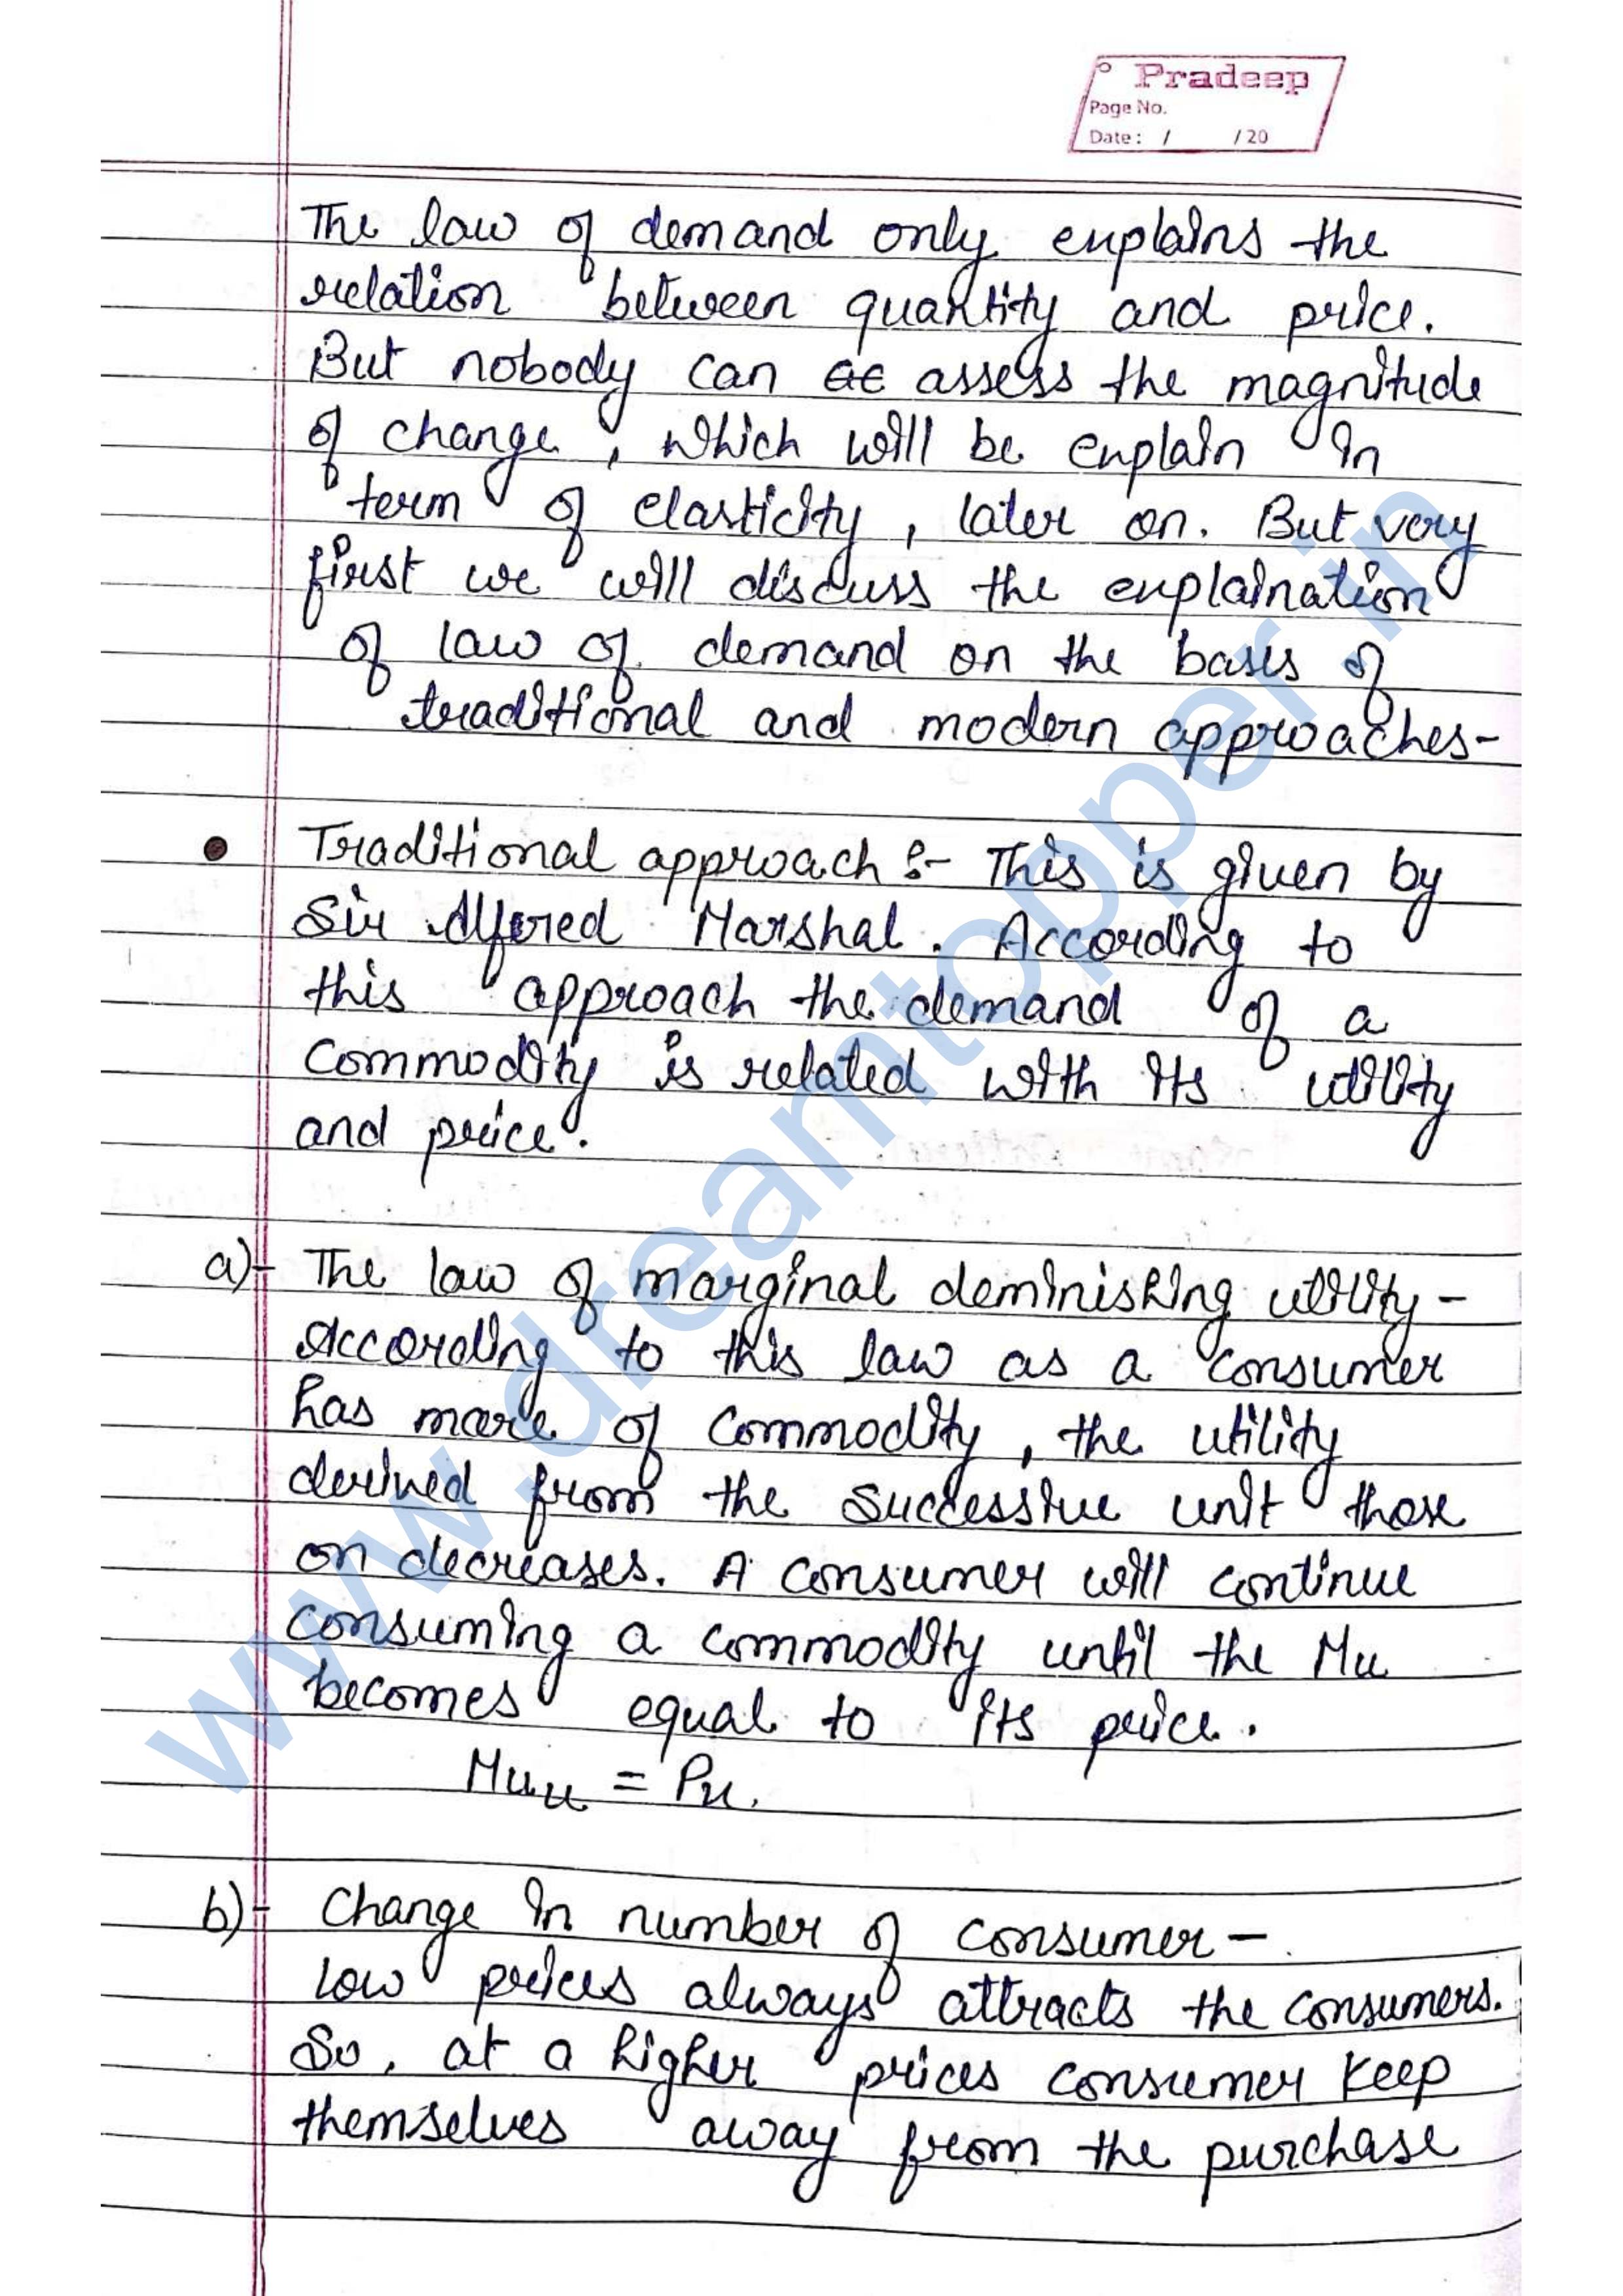 Pradeep
Page No.
Date : / / 20
The law of demand only explains the
relation between quantity and price.
But nobody can assess the magnitude
of change, which will be explain in
term of elasticity, later on. But very
first we will discuss the explaination
of law of demand on the bases of
traditional and modern approaches-
• Traditional approach :- This is given by
Sir Alfered Marshal. According to
this approach the demand of a
commodity is related with its utility
and price.
a)- The law of marginal deminishing utility -
According to this law as a consumer
has more of commodity, the utility
derived from the successive unit those
on decreases. A consumer will continue
consuming a commodity until the Mu
becomes equal to its price.
Mux = Px.
b)- Change in number of consumer -
Low prices always attracts the consumers.
So, at a higher prices consumer keep
themselves away from the purchase
www.dreamtopper.in